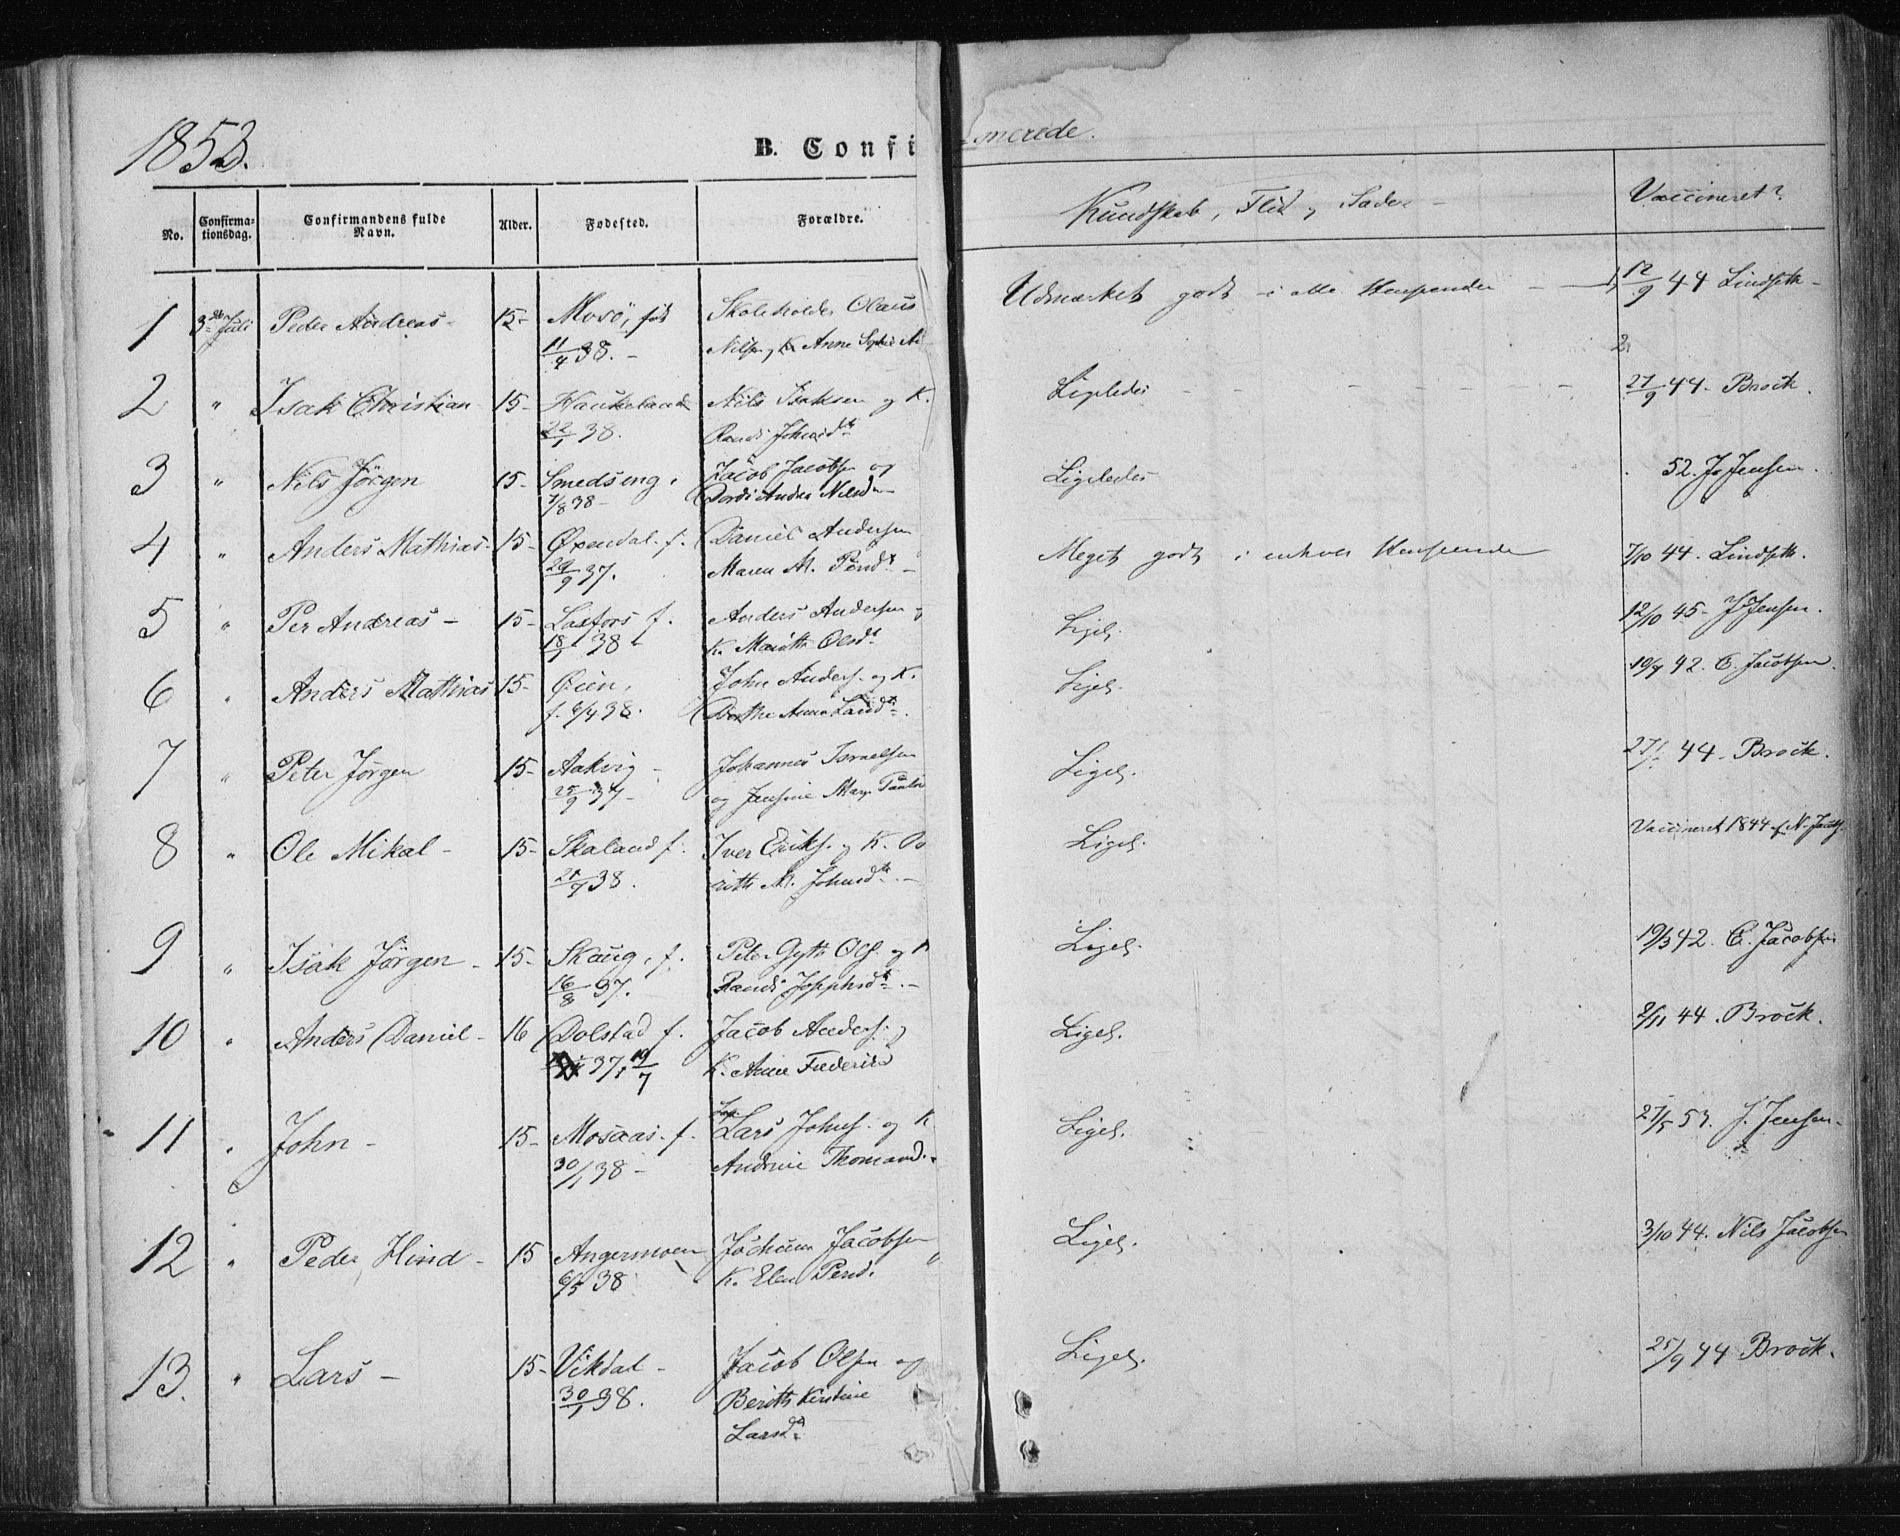 1853.
B. Confi
merede.
No.
Confirma-
tionsdag.
Confirmandens fulde
Navn.
Alder.
Fødested.
Forældre.
Kundskab, Flid og Sæder
Vaccineret?
1 3die Juli Peder Andreas - 15- Mosö, fød Skoleholder Olaus Udmærket godt i alle Henseender 12/9 44 Lindseth -
11/4 38. - Nilsen og K Anne Sophie
2 " Isak Christian 15- Haukeland Nils Isaksen og K. Ligeledes 27/9 44. Brock.
22/1 38. Randi Johnsdtr
3 " Nils Jörgen 15- Smedseng, Jacob Jacobsen og Ligeledes 52. J. Jensen.
7/8 38 - Nilsd
4 " Anders Mathias 15- Øxendal f. Daniel Andersen Meget godt i enhver Henseende 7/10 44. Lindseth.
29/9 37. Maren M. Pedrsdt -
5 " Per Andreas - 15- Laxfors f. Anders Andersen og Ligel. 12/10 45- J. Jensen.
18/1 38 K. Marith Olsdt
6 " Anders Mathias 15- Øien, John Anders. og K. Ligel. 42. C. Jacobsen.
f. 6/4 38. Dorthe Anna Larsdt.
7 " Peter Jörgen 15- Aakvig - Johannes Israelsen Ligel. 44. Brock.
25/9 37 - og Jensine Marg. Paulsd
8 " Ole Mikal - 15- Skaland f. Iver Eriks. og K. Ligel. Vaccineret 1844 af N. Jacobs.
38. M. Johnsdtr. -
9 " Isak Jörgen - 15- Skaug, f. Peter Gjeth Ols. og K Ligel. 19/3 42. C. Jacobsen
16/8 37. Randi Josephsdt. -
10 " Anders Daniel - 16 Dolstad f. Jacob Anders. og Ligel. 2/11 44. Brock.
37, 19/7 K. Anne Frederiks
11 " John - 15- Mosaas. f. Lap Lars Johns. og K Ligel. 27/5 53. J. Jensen -
30/1 38 - Andrine Thomasd.
12 " Peder Hind - 15 Angermoen Jochum Jacobsen " Ligel. 3/10 44. Nils Jacobsen
6/5 38 K. Elen Persd.
13. " Lars - 15- Vikdal - Jacob Olsen og Ligel. 25/9 44 Brock.
30/1 38. Berith Kirstine
Larsdt